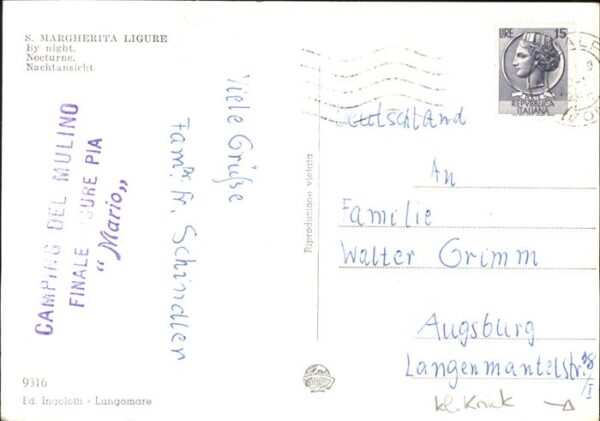 S. MARGHERITA LIGURE
By night.
Nocturne.
Nachtansicht.
CAMPING DEL MULINO
FINALE LIGURE PIA
"Mario"
Viele Grüße
Fam. Fr. Schindler
Riproduzione vietata
LIRE 15
POSTE
REPVBBLICA
ITALIANA
Deutschland
An
Familie
Walter Grimm
Augsburg
Langenmantelstr.
kl. Knick
9316
Ed. Ingolotti - Lungomare